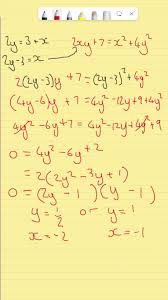 2y = 3 + x     2xy + 7 = x² + 4y²
2y - 3 = x
2(2y-3)y + 7 = (2y-3)² + 4y²
(4y-6)y + 7 = 4y² - 12y + 9 + 4y²
4y² - 6y + 7 = 4y² - 12y + 9 + 4y²
0 = 4y² - 6y + 2
= 2(2y² - 3y + 1)
0 = (2y - 1)(y - 1)
y = 1/2 or y = 1
x = -2     x = -1